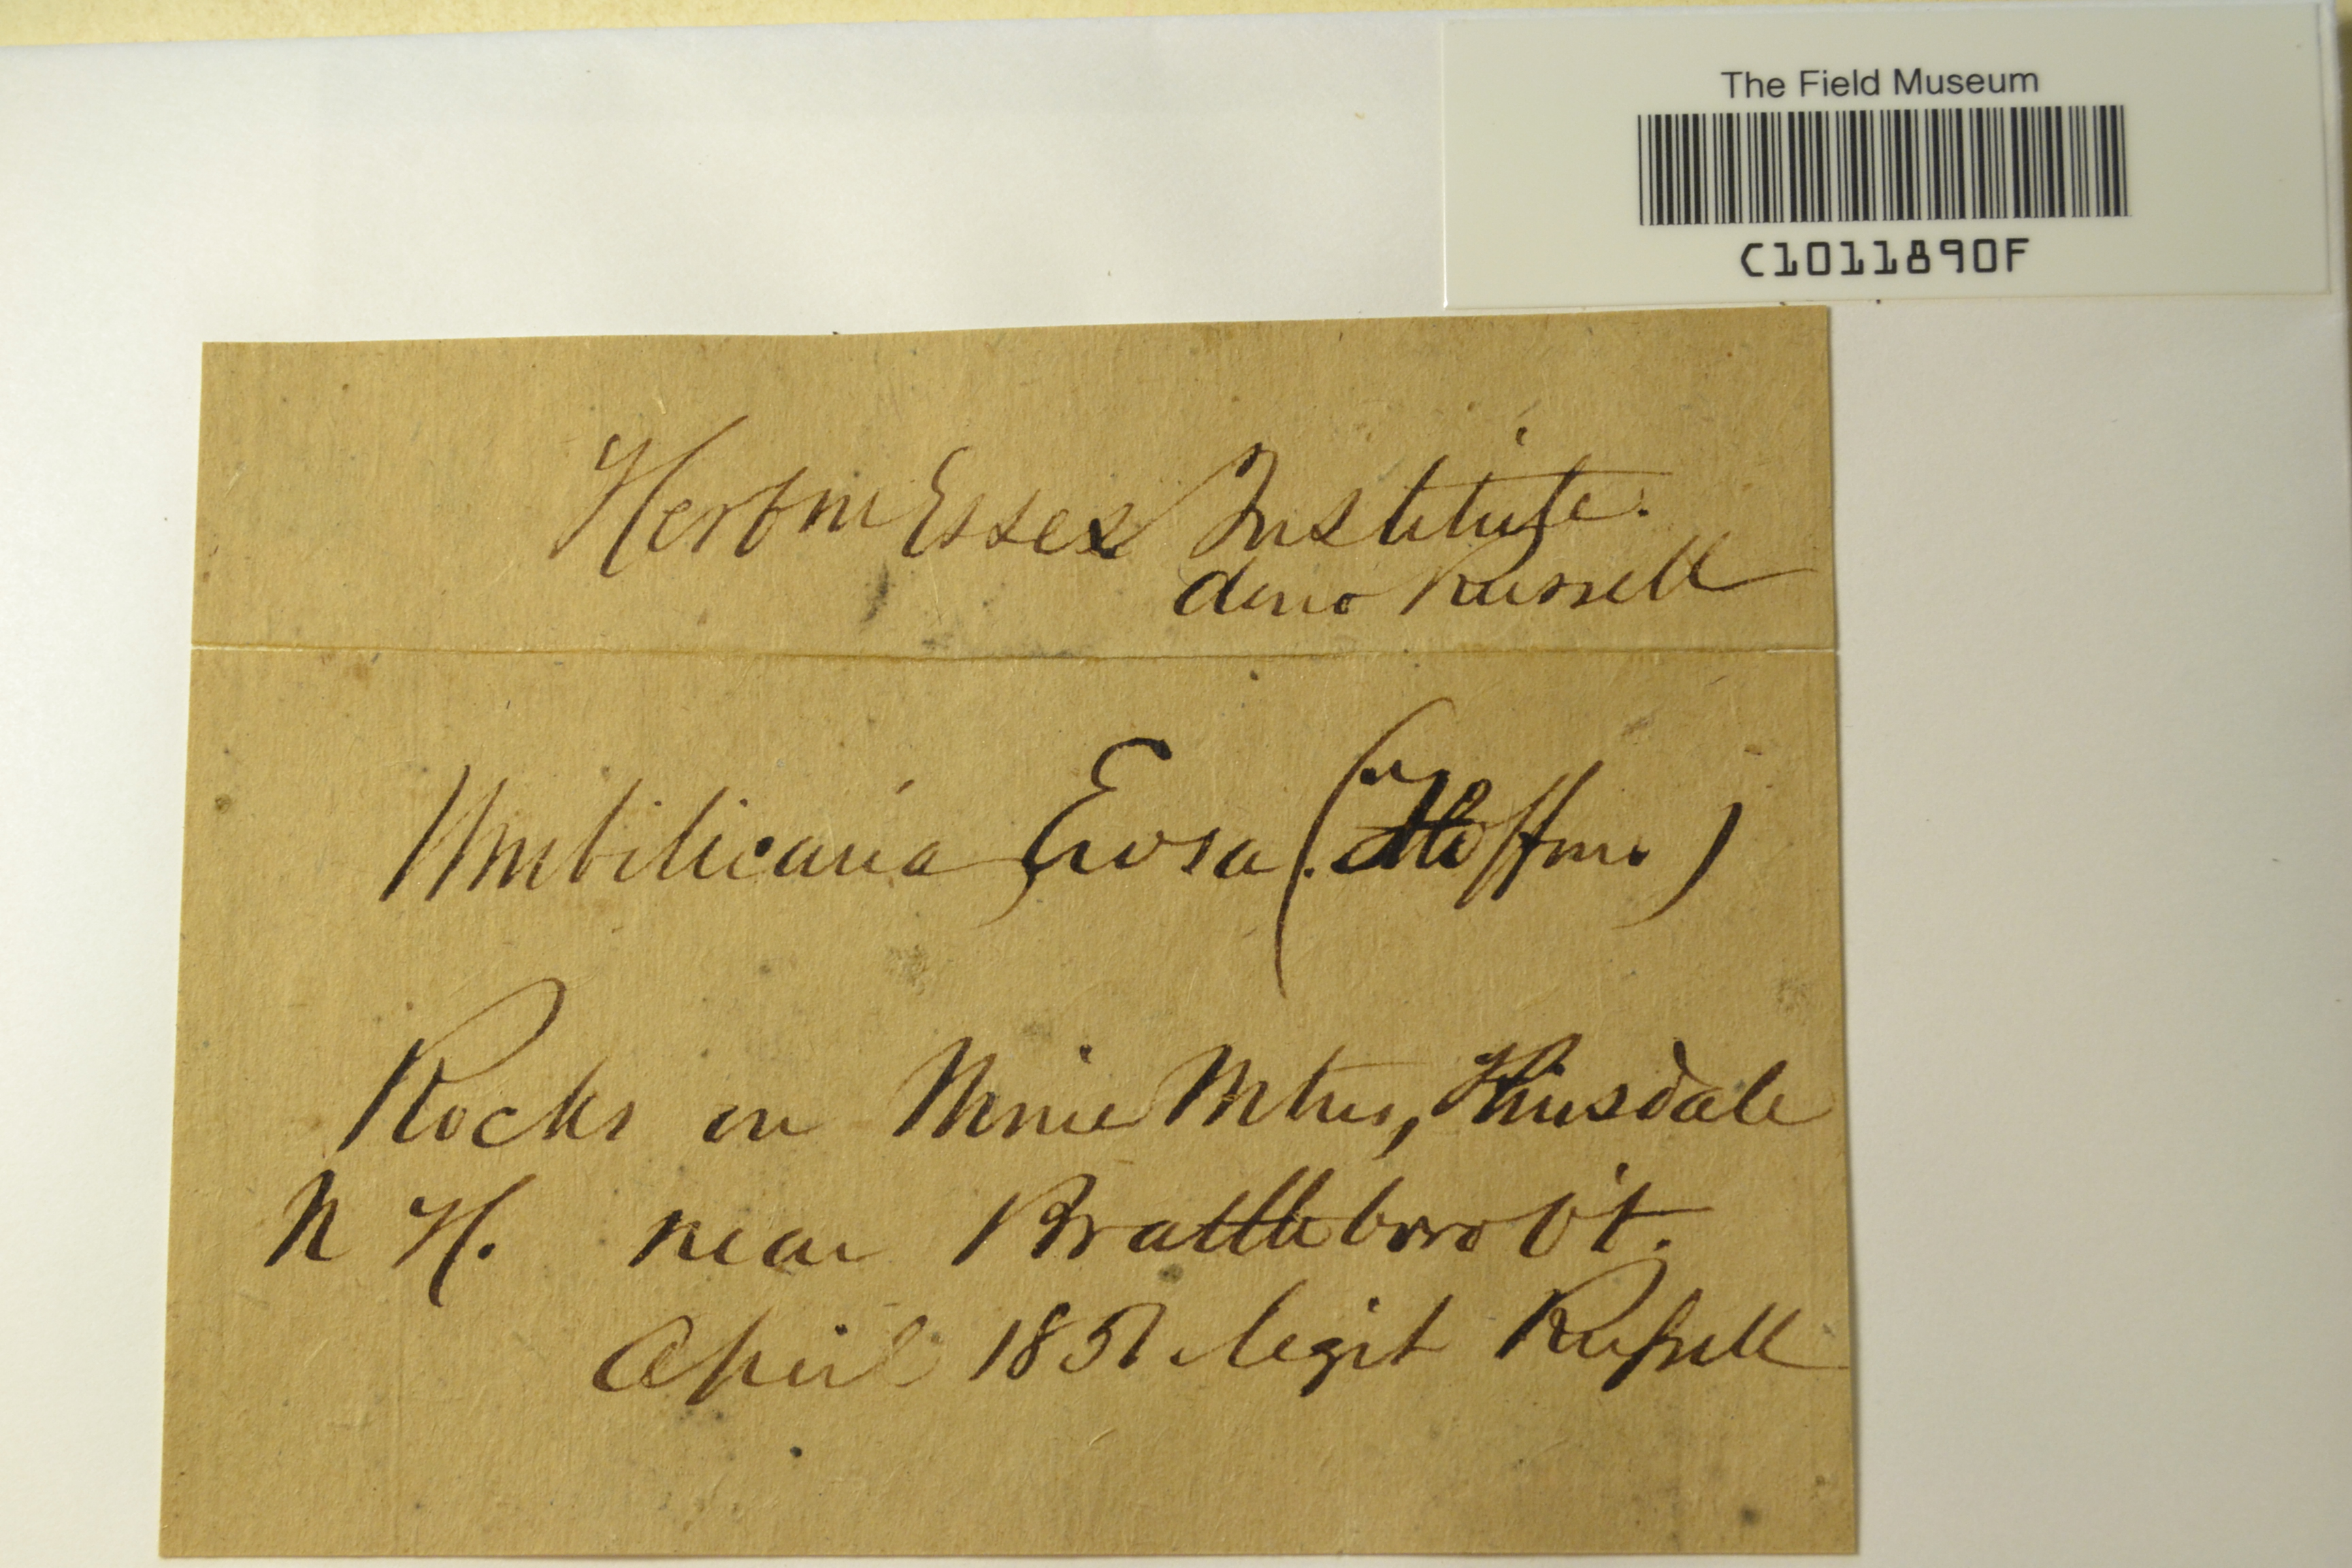 The Field Museum
C1011890F
Herbm Essex Institute.
dono Russell
Umbilicaria Erosa (Hoffm.)
Rocks on Mine Mtns, Hinsdale
N H. near Brattleboro Vt.
April 1851 legit Russell